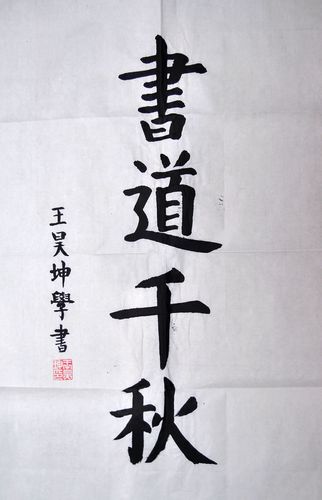 書道千秋
王昊坤學書